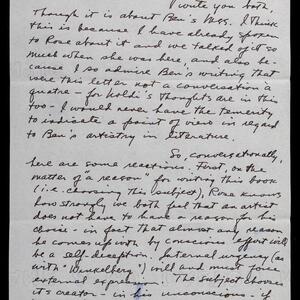 I write you both,
though it is about Ben's Mss. I think
this is because I have already spoken
to Rose about it and we talked of it so
much when she was here, and also be-
cause I so admire Ben's writing that
were this letter not a conversation à
quatre - for Koldi's thoughts are in this
too - I would never have the temerity
to indicate a point of view in regard
to Ben's artistry in literature.
So, conversationally,
here are some reactions. First, on the
matter of "a reason" for writing this book
(i.e. choosing this subject), Rose knows
how strongly we both feel that an artist
does not have to have a reason for his
choice - in fact that almost any reason
he comes up with by conscious effort will
be a self-deception. Internal urgency (as
with "Winkelberg") will and must force
external expression. The subject chooses
it's creator - in his unconscious. if